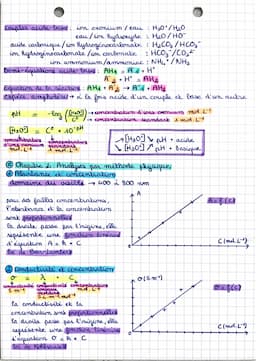 Couples acide-base : ion oxonium / eau : H₃O⁺/H₂O
eau / ion hydroxyde : H₂O/HO⁻
acide carbonique / ion hydrogénocarbonate : H₂CO₃/HCO₃⁻
ion hydrogénocarbonate / ion carbonate : HCO₃⁻/CO₃²⁻
ion ammonium / ammoniac : NH₄⁺/NH₃
Demi-équations acide-base :
Équation de la réaction :
Espèce amphotère → à la fois acide d'un couple et base d'un autre
pH = -log ([H₃O⁺]/C°) → concentration d'ions oxonium mol.L⁻¹
→ concentration standard 1 mol.L⁻¹
[H₃O⁺] = C° × 10⁻ᵖᴴ
↗[H₃O⁺] ↘ pH + acide
↘[H₃O⁺] ↗ pH + basique
Chapitre 2 : Analyses par méthode physique
Absorbance et concentration
domaine du visible → 400 à 800 nm
pour des faibles concentrations,
l'absorbance et la concentration
sont proportionnelles
la droite passe par l'origine, elle
représente une fonction linéaire
d'équation A = k × C
loi de Beer-Lambert
A
A = f(C)
C (mol.L⁻¹)
Conductivité et concentration
σ = k × C
la conductivité et la
concentration sont proportionnelles
la droite passe par l'origine, elle
représente une fonction linéaire
d'équation σ = k × C
loi de Kohlrausch
σ (S.m⁻¹)
σ = f(C)
C (mol.L⁻¹)